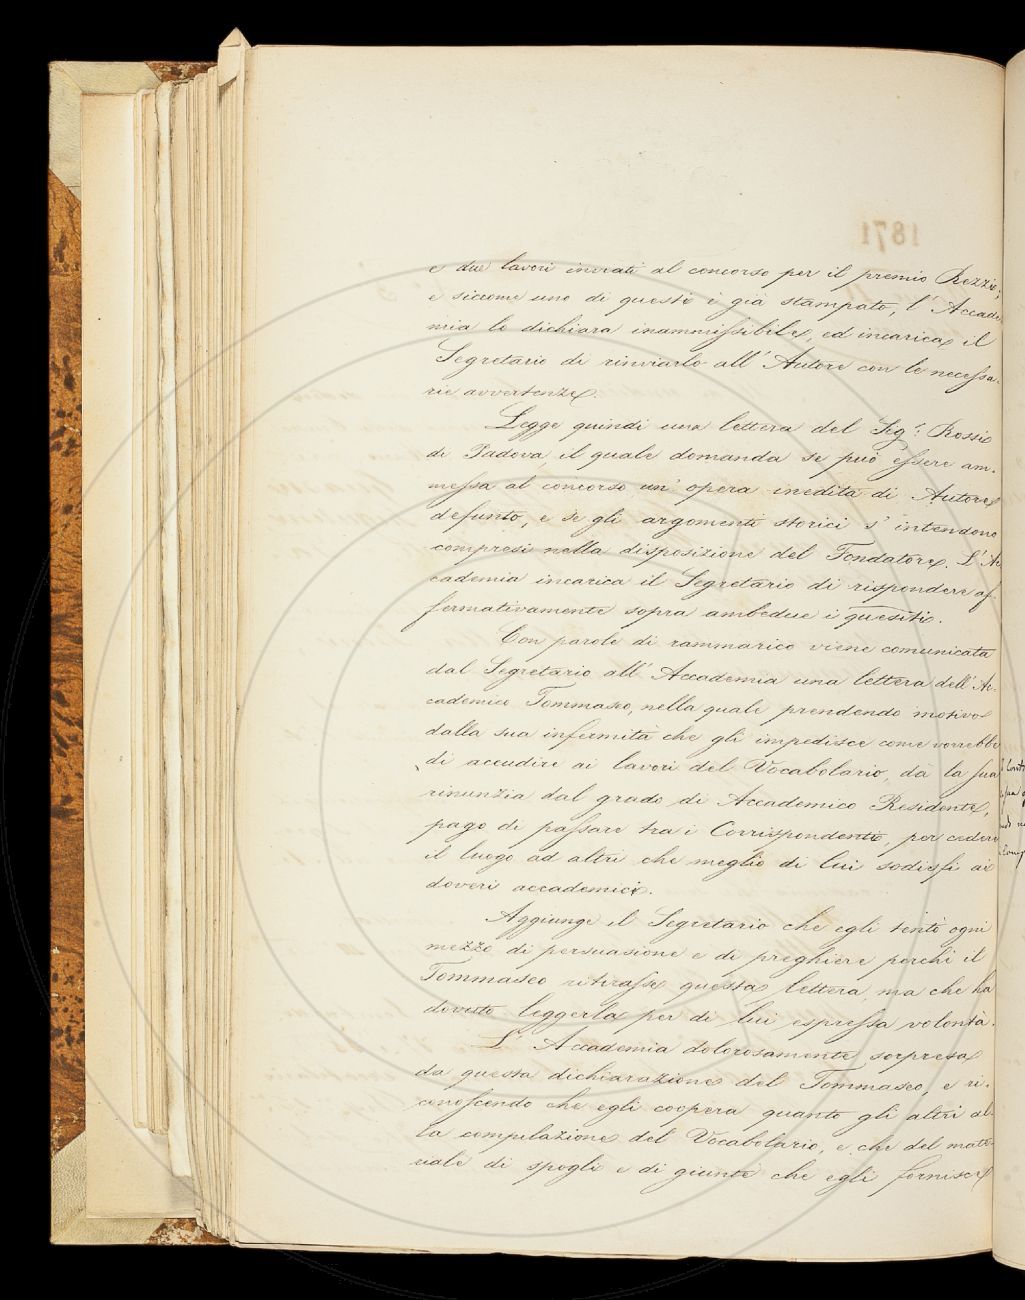 1871
e due lavori inviati al concorso per il premio Rezzi;
e siccome uno di questi è già stampato, l'Accade
mia lo dichiara inammissibile, ed incarica il
Segretario di rinviarlo all'Autore con le necessa-
rie avvertenze.
Legge quindi una lettera del Sig.r Rossi
di Padova, il quale domanda se può essere am-
messa al concorso un'opera inedita di Autore
defunto, e se gli argomenti storici s'intendono
compresi nella disposizione del Fondatore. L'Ac
cademia incarica il Segretario di rispondere af-
fermativamente sopra ambedue i quesiti.
Con parole di rammarico viene comunicata
dal Segretario all'Accademia una lettera dell'Ac-
cademico Tommaseo, nella quale prendendo motivo
dalla sua infermità che gli impedisce come vorrebbe
di accudire ai lavori del Vocabolario, dà la sua
rinunzia dal grado di Accademico Residente,
pago di passare tra i Corrispondenti, per cedere
il luogo ad altri che meglio di lui sodisfi ai
doveri accademici.
Aggiunge il Segretario che egli tentò ogni
mezzo di persuasione e di preghiere perchè il
Tommaseo ritirasse questa lettera, ma che ha
dovuto leggerla per di lui espressa volontà.
L'Accademia dolorosamente sorpresa
da questa dichiarazione del Tommaseo, e ri-
conoscendo che egli coopera quanto gli altri al-
la compilazione del Vocabolario, e che del mate-
riale di spogli e di giunte che egli fornisce